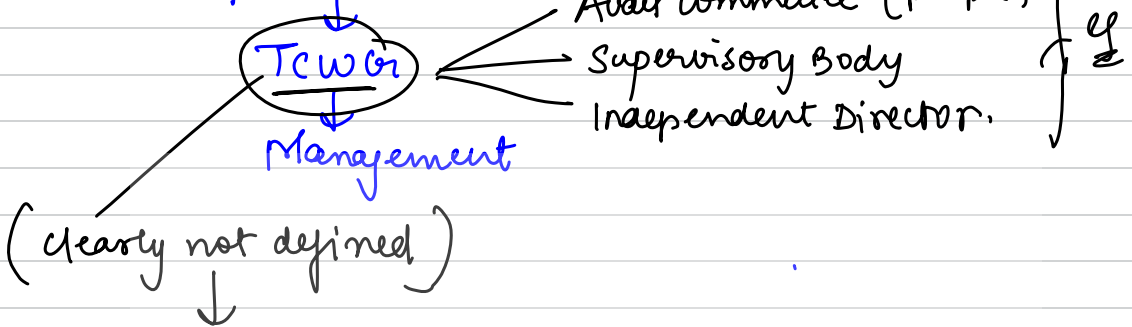 TCWG
Supervisory Body
Independent Director.
Management
(clearly not defined)